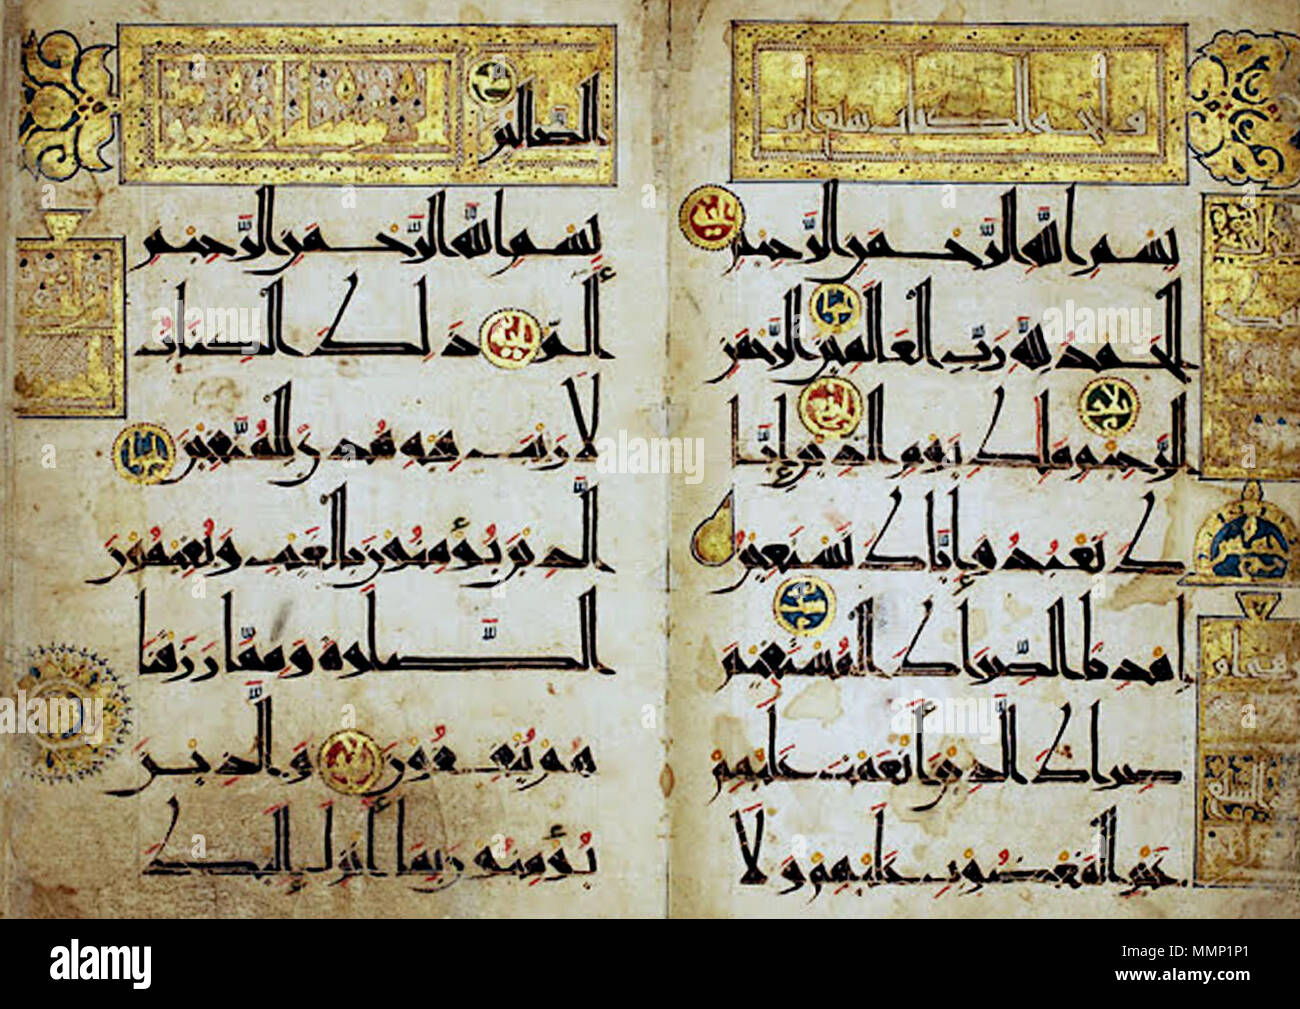 فاتحة الكتاب سبع آيات
بِسْمِ اللَّهِ الرَّحْمَنِ الرَّحِيمِ
الْحَمْدُ لِلَّهِ رَبِّ الْعَالَمِينَ الرَّحْمَنِ
الرَّحِيمِ مَلِكِ يَوْمِ الدِّينِ إِيَّا
كَ نَعْبُدُ وَإِيَّاكَ نَسْتَعِينُ
اهْدِنَا الصِّرَاطَ الْمُسْتَقِيمَ
صِرَاطَ الَّذِينَ أَنْعَمْتَ عَلَيْهِمْ
غَيْرِ الْمَغْضُوبِ عَلَيْهِمْ وَلَا
الضَّالِّينَ
بِسْمِ اللَّهِ الرَّحْمَنِ الرَّحِيمِ
الم ذَلِكَ الْكِتَابُ
لَا رَيْبَ فِيهِ هُدًى لِلْمُتَّقِينَ
الَّذِينَ يُؤْمِنُونَ بِالْغَيْبِ وَيُقِيمُونَ
الصَّلَوةَ وَمِمَّا رَزَقْنَا
هُمْ يُنْفِقُونَ وَالَّذِينَ
يُؤْمِنُونَ بِمَا أُنْزِلَ إِلَيْكَ
alamy
MMP1P1
www.alamy.com